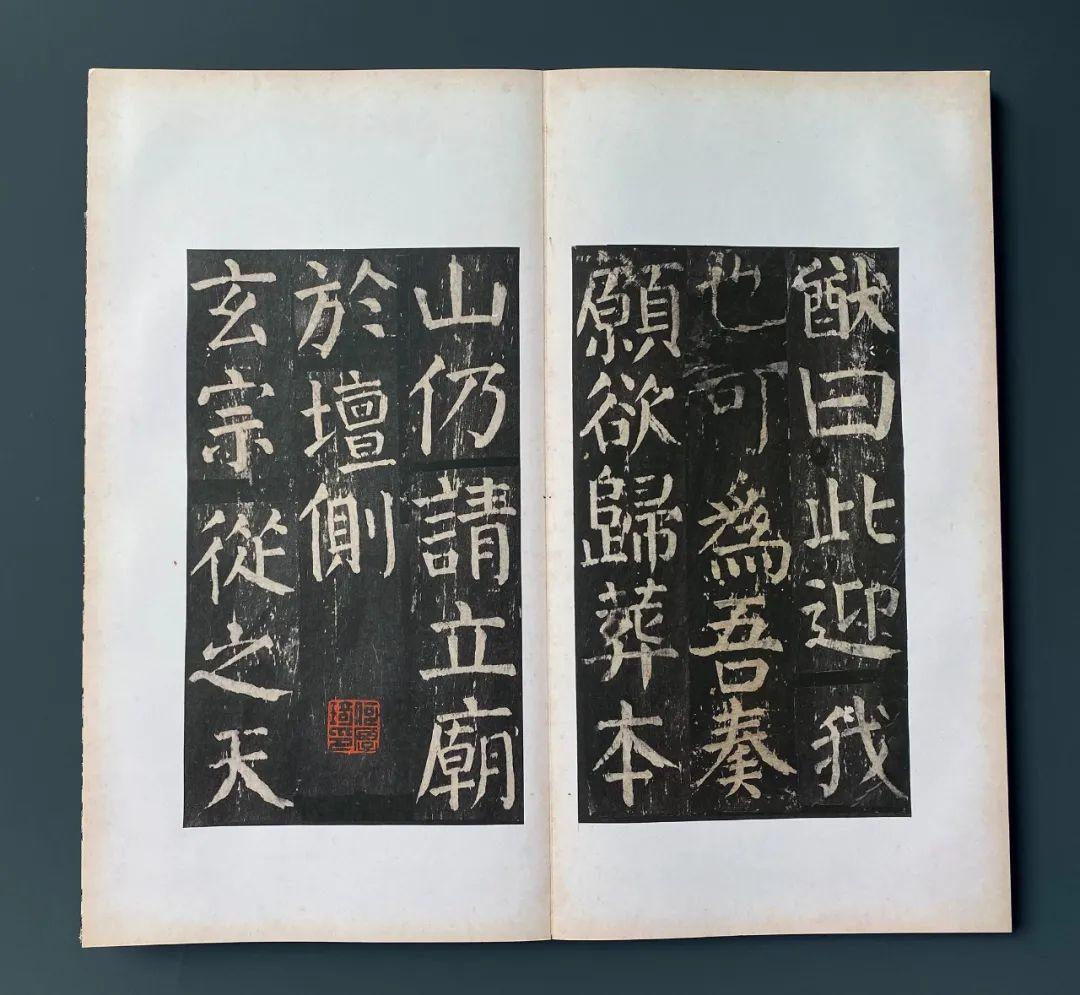 猷曰此迎我
也可爲吾奏
願欲歸葬本
山仍請立廟
於壇側
玄宗從之天